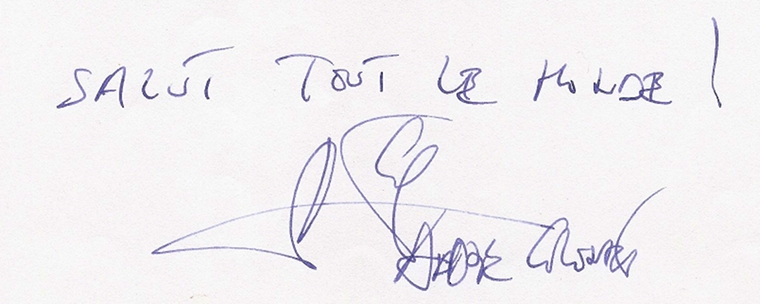 SALUT TOUT LE MONDE !
ANDRE